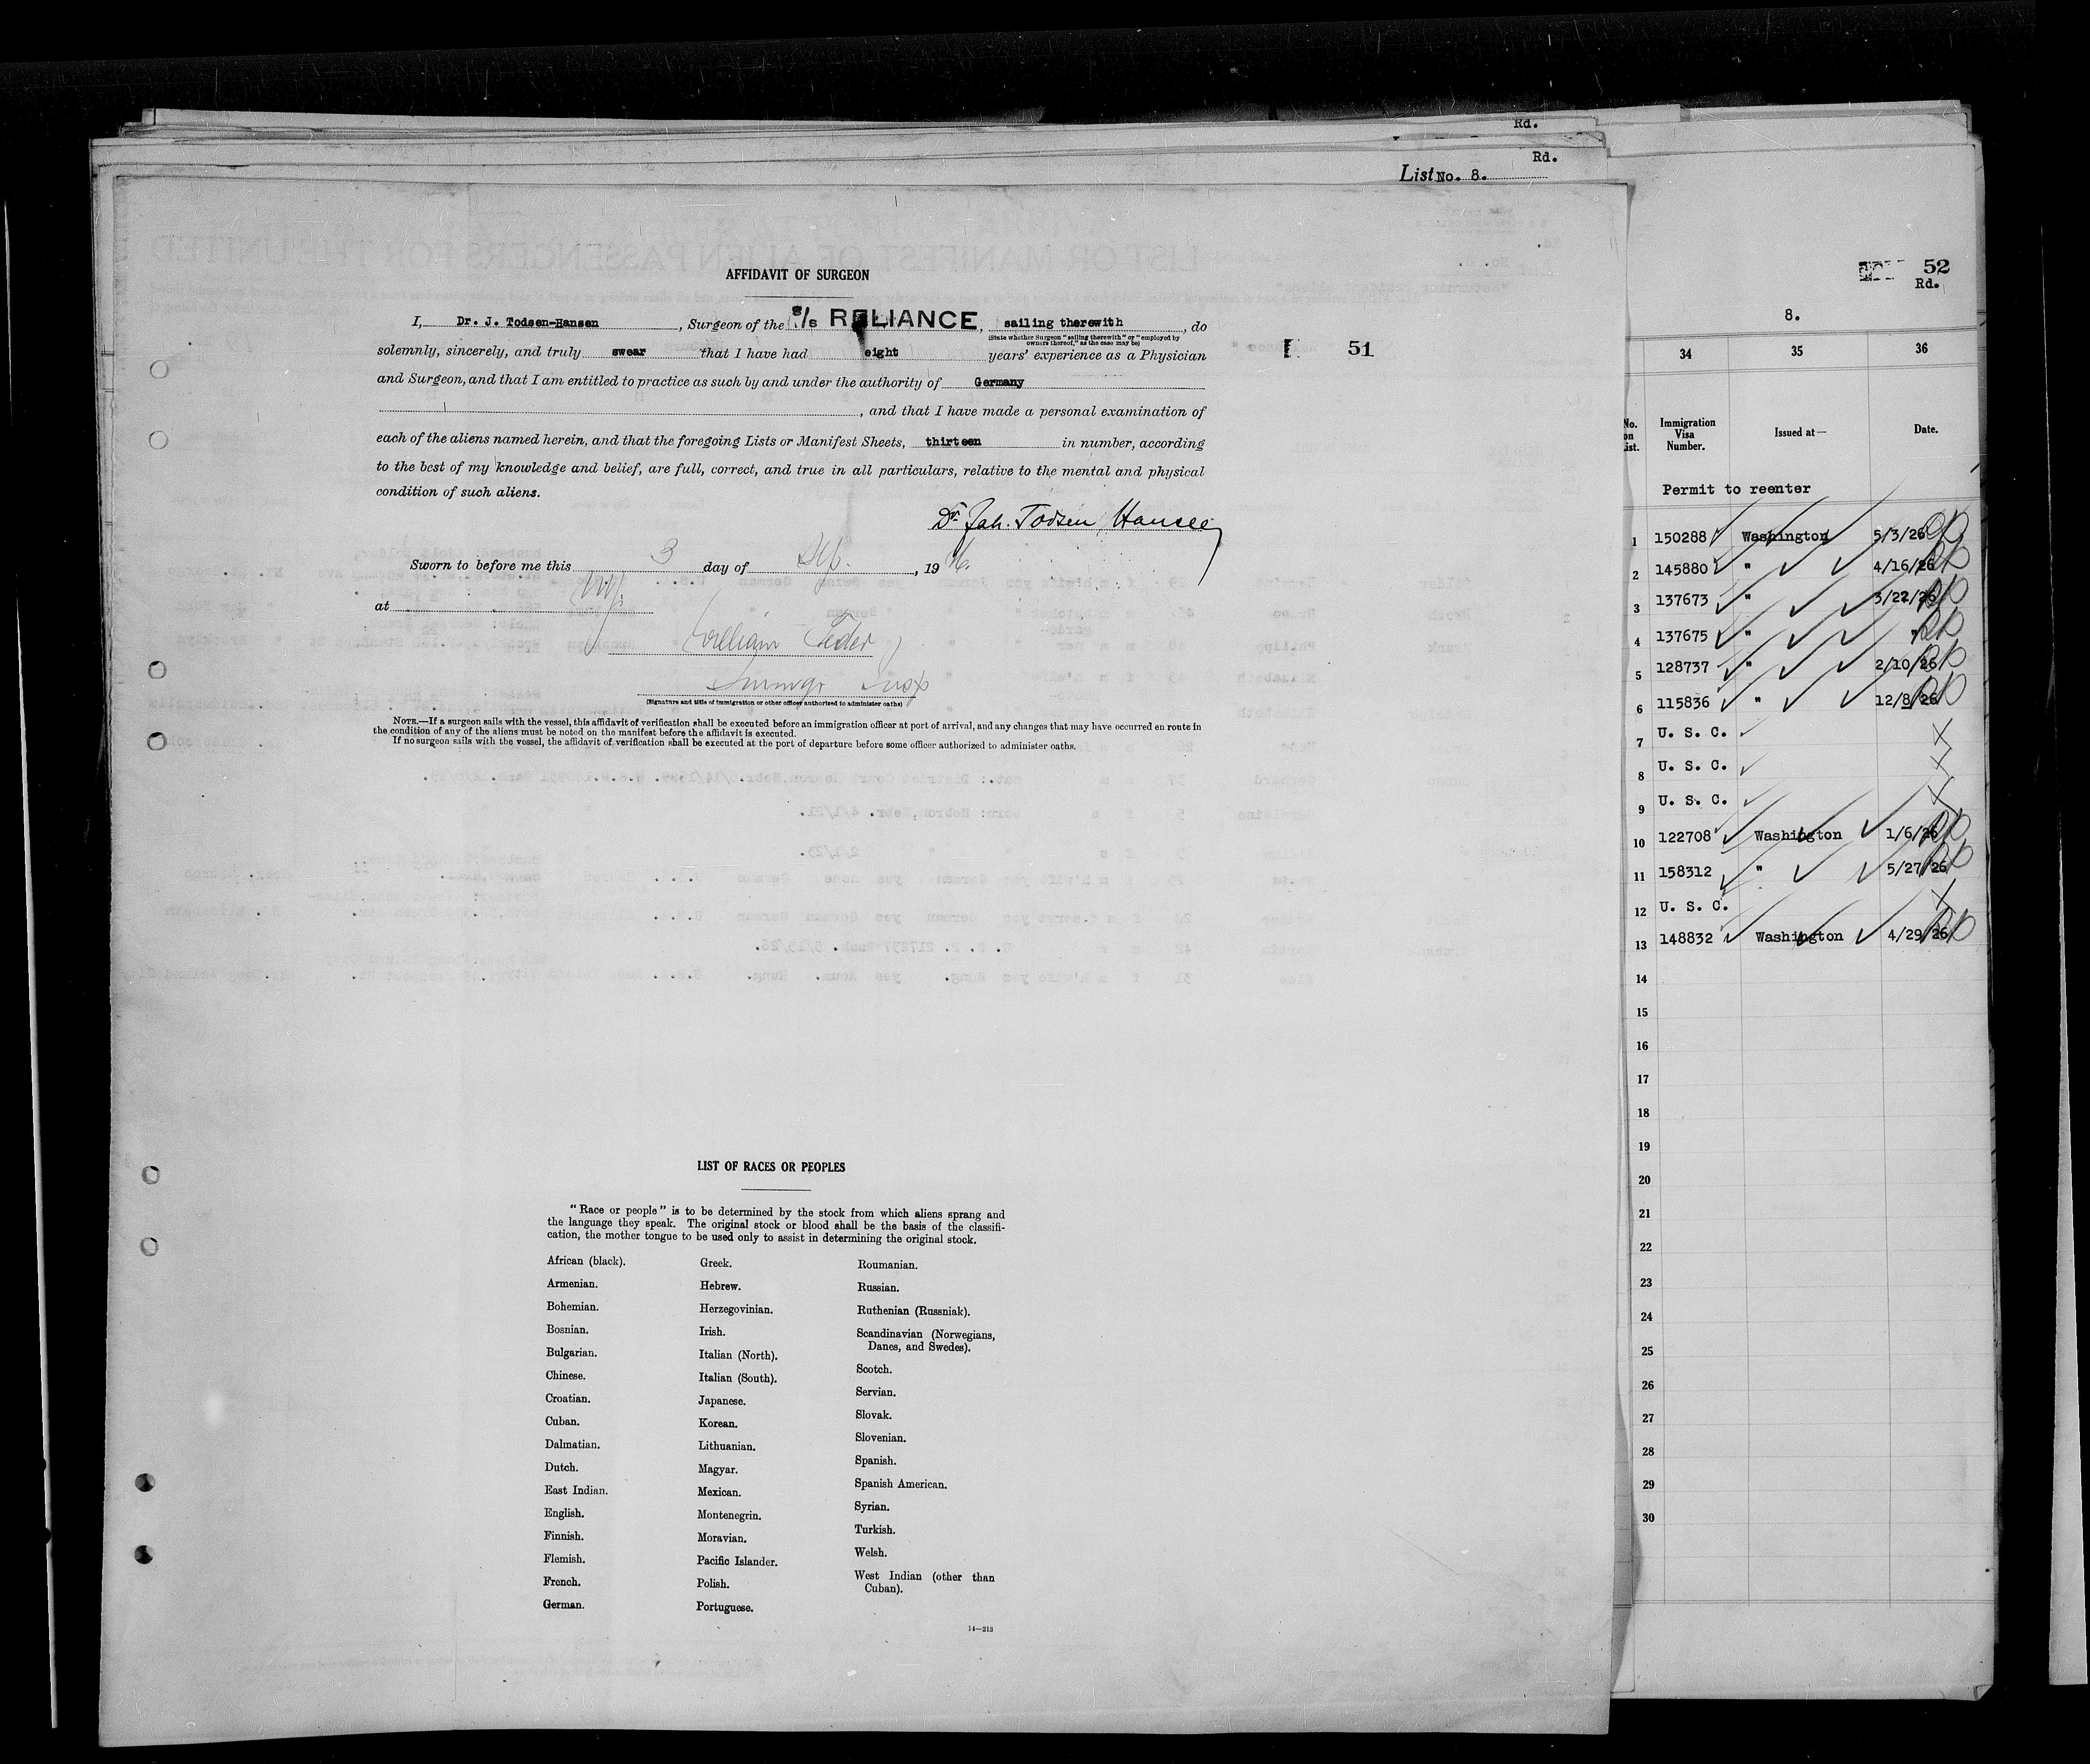 Rd.
Rd.
List No. 8.
AFFIDAVIT OF SURGEON
I, Dr. J. Todsen-Hansen, Surgeon of the S/s RELIANCE, sailing therewith, do
(State whether Surgeon "sailing therewith" or "employed by
owners thereof," as the case may be)
solemnly, sincerely, and truly swear that I have had eight years' experience as a Physician
and Surgeon, and that I am entitled to practice as such by and under the authority of Germany
, and that I have made a personal examination of
each of the aliens named herein, and that the foregoing Lists or Manifest Sheets, thirteen in number, according
to the best of my knowledge and belief, are full, correct, and true in all particulars, relative to the mental and physical
condition of such aliens.
Dr. Joh. Todsen Hansen
Sworn to before me this 3 day of Sep., 1926.
at NY.
William Feder
Immigr Insp
(Signature and title of immigration or other officer authorized to administer oaths)
NOTE.—If a surgeon sails with the vessel, this affidavit of verification shall be executed before an immigration officer at port of arrival, and any changes that may have occurred en route in
the condition of any of the aliens must be noted on the manifest before the affidavit is executed.
If no surgeon sails with the vessel, the affidavit of verification shall be executed at the port of departure before some officer authorized to administer oaths.
51
LIST OF RACES OR PEOPLES
"Race or people" is to be determined by the stock from which aliens sprang and
the language they speak. The original stock or blood shall be the basis of the classifi-
cation, the mother tongue to be used only to assist in determining the original stock.
African (black).
Armenian.
Bohemian.
Bosnian.
Bulgarian.
Chinese.
Croatian.
Cuban.
Dalmatian.
Dutch.
East Indian.
English.
Finnish.
Flemish.
French.
German.
Greek.
Hebrew.
Herzegovinian.
Irish.
Italian (North).
Italian (South).
Japanese.
Korean.
Lithuanian.
Magyar.
Mexican.
Montenegrin.
Moravian.
Pacific Islander.
Polish.
Portuguese.
Roumanian.
Russian.
Ruthenian (Russniak).
Scandinavian (Norwegians,
Danes, and Swedes).
Scotch.
Servian.
Slovak.
Slovenian.
Spanish.
Spanish American.
Syrian.
Turkish.
Welsh.
West Indian (other than
Cuban).
14—213
52
Rd.
8.
34 35 36
No. on List. Immigration Visa Number. Issued at— Date.
Permit to reenter
1 150288 Washington 5/3/26
2 145880 " 4/16/26
3 137673 " 3/22/26
4 137675 " "
5 128737 " 2/10/26
6 115836 " 12/8/26
7 U. S. C.
8 U. S. C.
9 U. S. C.
10 122708 Washington 1/6/26
11 158312 " 5/27/26
12 U. S. C.
13 148832 Washington 4/29/26
14
15
16
17
18
19
20
21
22
23
24
25
26
27
28
29
30